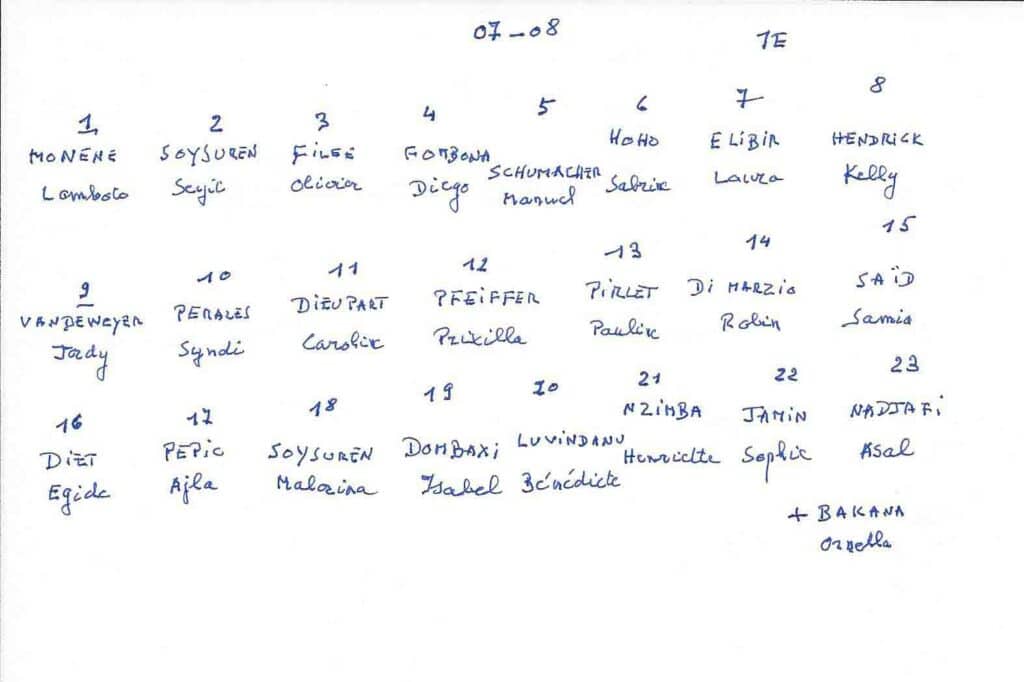 07-08 1E
1 2 3 4 5 6 7 8
MONENE SOYSUREN FILEE GOMBONA SCHUMACHER HOHO ELIBIR HENDRICK
Lomboto Seyit Olivier Diego Manuel Sabrix Laura Kelly
9 10 11 12 13 14 15
VANDEWEYER PERALES DIEUPART PFEIFFER PIRLET DI MARZIO SAÏD
Jordy Syndi Carolix Prixilla Paulix Robin Samia
16 17 18 19 20 21 22 23
DIET PEPIC SOYSUREN DOMBAXI LUVINDANU NZIMBA JAMIN NADJAFI
Egide Ajla Isabel Bénédicte Henriette Sophie Asal
+ BAKANA
Ornella